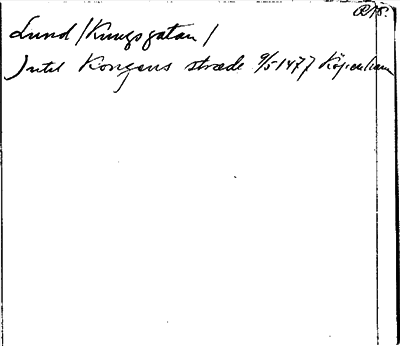 Lund /Kungsgatan/
Jntil Kongens stræde 9/5 1477 Köpenhamn